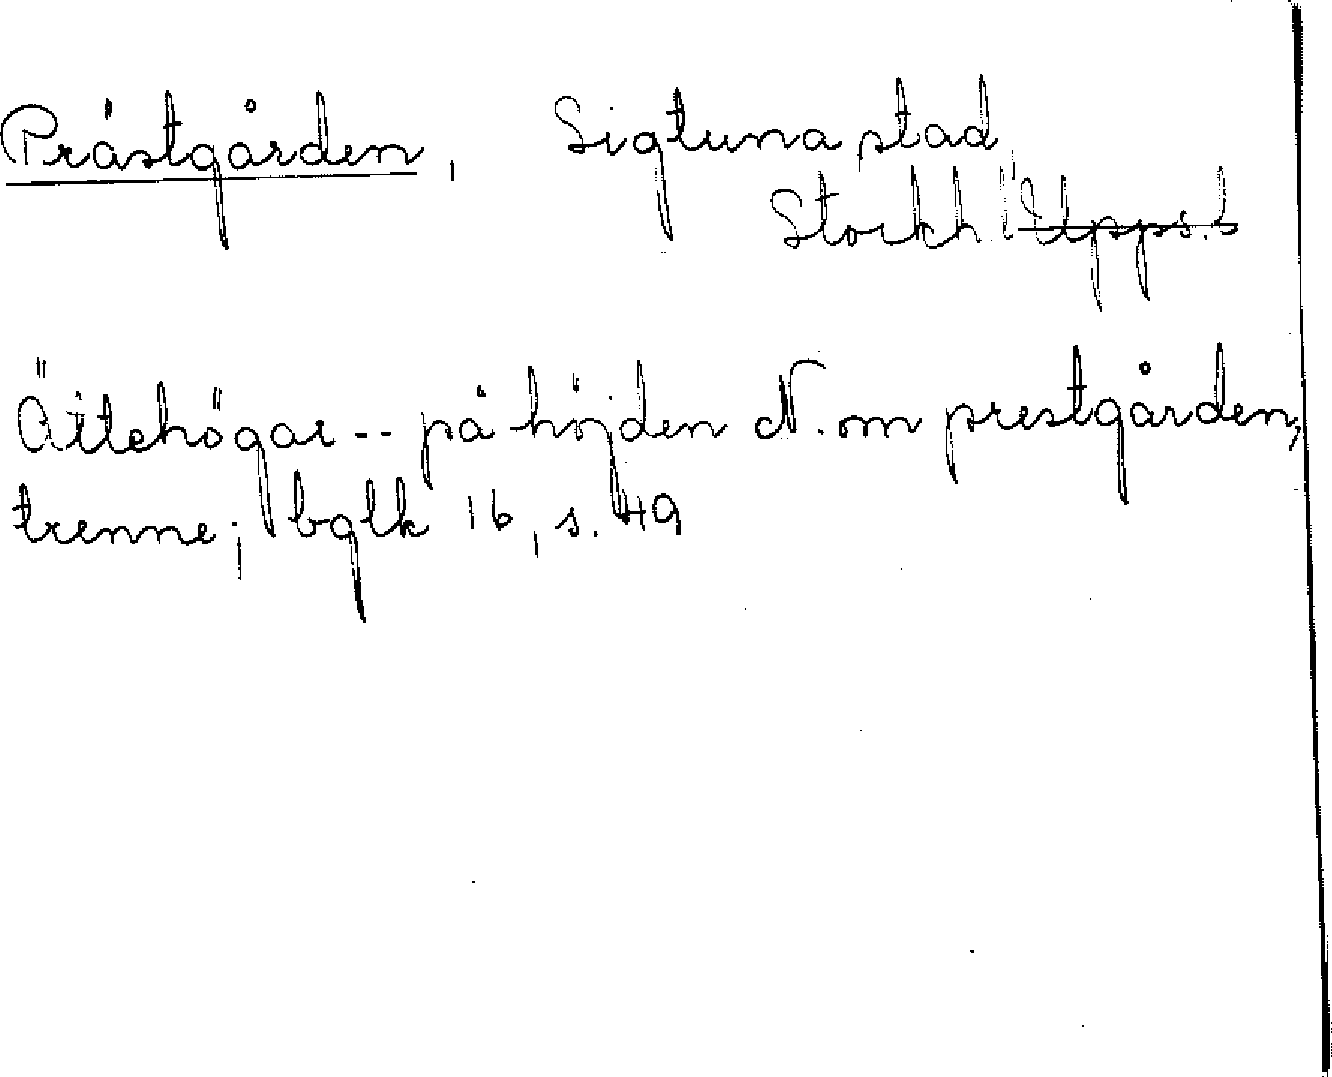 Prästgården, Sigtuna stad
Stockh. l Upps. l
Ättehögar -- på höjden N. om prestgården,
trenne; bglk 16, s. 49